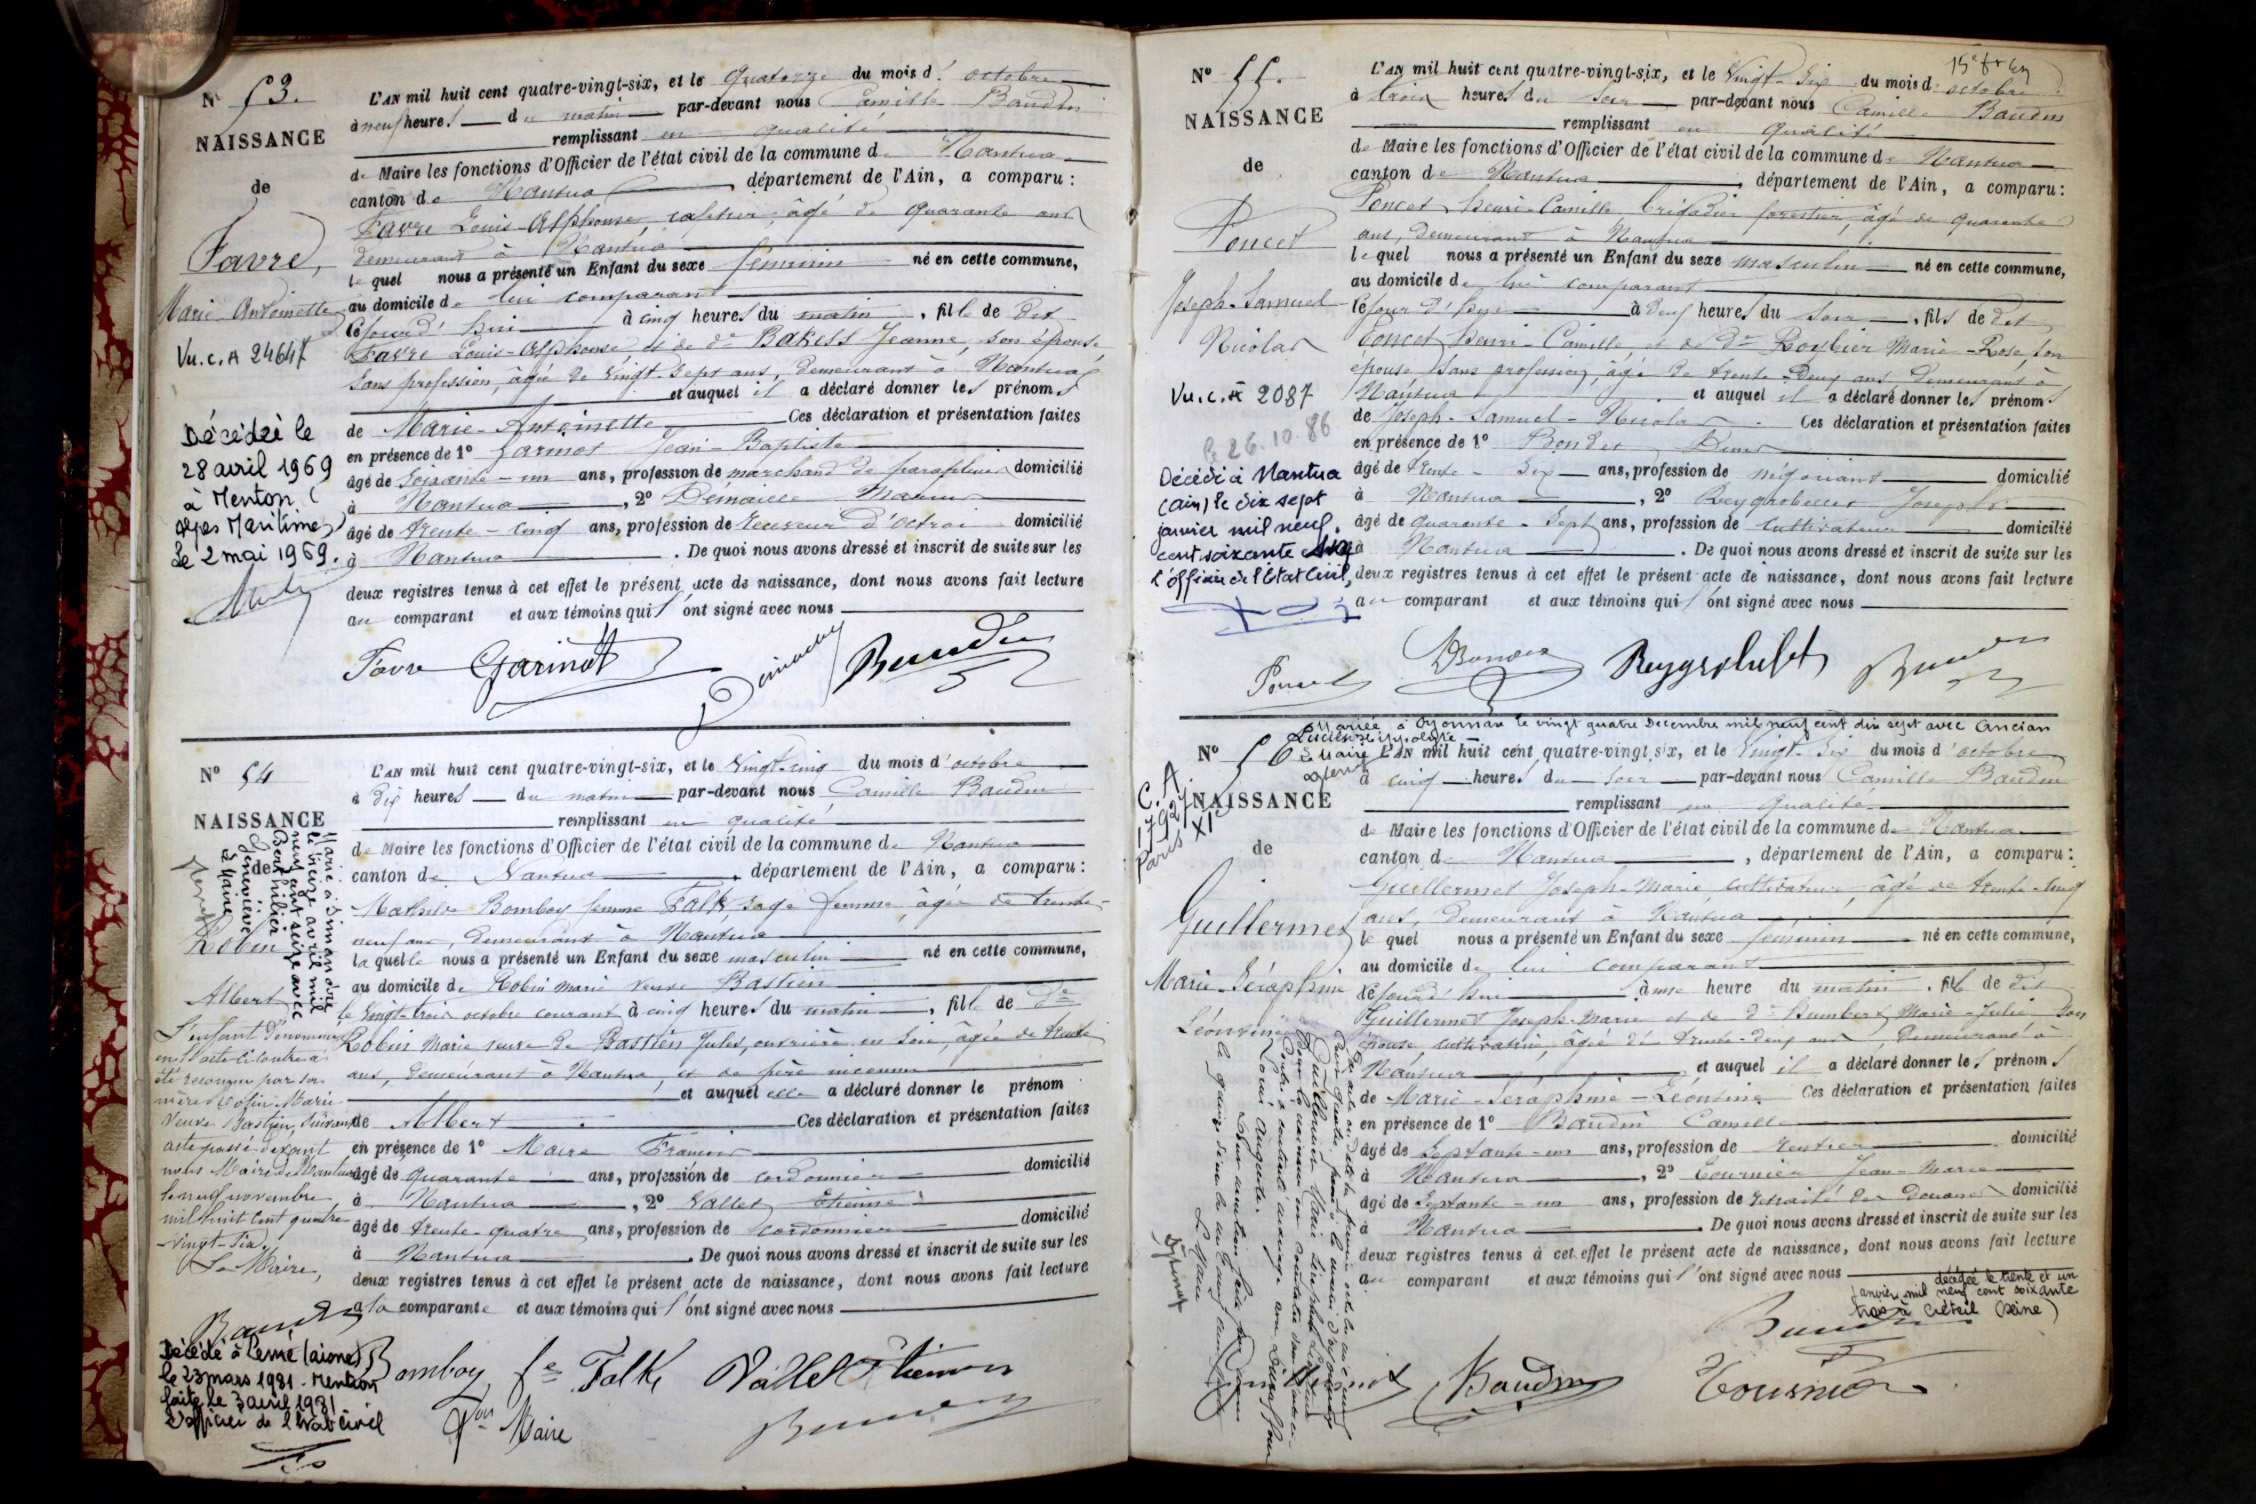 N° 53.
NAISSANCE
de
Favre,
Marie Antoinette
Vu. C. A 24647
Décédée le
28 avril 1969
à Menton (
Alpes Maritimes)
Le 2 mai 1969.
L'AN mil huit cent quatre-vingt-six, et le quatorze du mois d'octobre
à neuf heures du matin par-devant nous Camille Baudin
remplissant en qualité
de Maire les fonctions d'Officier de l'état civil de la commune de Nantua
canton de Nantua, département de l'Ain, a comparu :
Favre Louis-Alphonse, cafetier, âgé de quarante ans
demeurant à Nantua
lequel nous a présenté un Enfant du sexe féminin né en cette commune,
au domicile de lui comparant
cejourd'hui à cinq heures du matin, fille de dit
Favre Louis-Alphonse et de de Jeanne, son épouse
sans profession, âgée de vingt-sept ans, demeurant à Nantua
et auquel il a déclaré donner les prénoms
de Marie-Antoinette Ces déclaration et présentation faites
en présence de 1° Garinot Jean-Baptiste
âgé de soixante-un ans, profession de marchand de parapluies domicilié
à Nantua, 2°
âgé de trente-cinq ans, profession de receveur d'octroi domicilié
à Nantua. De quoi nous avons dressé et inscrit de suite sur les
deux registres tenus à cet effet le présent acte de naissance, dont nous avons fait lecture
au comparant et aux témoins qui l'ont signé avec nous
Favre Garinot Baudin
N° 54
NAISSANCE
de
Robin
Albert
Marié à Simandre
le treize avril mil
neuf cent seize avec
Berthilier
Geneviève
Le Maire
L'enfant dénommé
en l'acte ci-contre a
été reconnu par sa
mère Robin Marie
Veuve Bastien, suivant
acte passé devant
nous Maire de Nantua
le neuf novembre
mil huit cent quatre
vingt-six.
Le Maire,
Baudin
Décédé à
le 23 mars 1981. Mention
faite le 3 avril 1981
L'officier de l'état civil
L'AN mil huit cent quatre-vingt-six, et le vingt-cinq du mois d'octobre
à dix heures du matin par-devant nous Camille Baudin
remplissant en qualité
de Maire les fonctions d'Officier de l'état civil de la commune de Nantua
canton de Nantua, département de l'Ain, a comparu :
Mathilde Bomboy femme Falk, sage femme, âgée de trente-
neuf ans, demeurant à Nantua
laquelle nous a présenté un Enfant du sexe masculin né en cette commune,
au domicile de Robin Marie veuve Bastien
le vingt-trois octobre courant à cinq heures du matin, fils de de
Robin Marie veuve de Bastien Jules, ouvrière en soie, âgée de trente
ans, demeurant à Nantua, et de père inconnu
et auquel elle a déclaré donner le prénom
de Albert Ces déclaration et présentation faites
en présence de 1° Maire François
âgé de quarante ans, profession de cordonnier domicilié
à Nantua, 2° Vallet Etienne
âgé de trente-quatre ans, profession de cordonnier domicilié
à Nantua. De quoi nous avons dressé et inscrit de suite sur les
deux registres tenus à cet effet le présent acte de naissance, dont nous avons fait lecture
à la comparante et aux témoins qui l'ont signé avec nous
Bomboy fe Falk Vallet Etienne
Maire Baudin
N° 55.
NAISSANCE
de
Poncet
Joseph-Samuel
Nicolas
Vu. C. A 2087
Le 26.10.86
Décédé à Nantua
(Ain) le dix sept
janvier mil neuf
cent soixante
L'officier de l'Etat Civil,
L'AN mil huit cent quatre-vingt-six, et le vingt-six du mois d'octobre
à trois heures du soir par-devant nous Camille Baudin
remplissant en qualité
de Maire les fonctions d'Officier de l'état civil de la commune de Nantua
canton de Nantua, département de l'Ain, a comparu :
Poncet Henri-Camille, brigadier forestier, âgé de quarante
ans, demeurant à Nantua
lequel nous a présenté un Enfant du sexe masculin né en cette commune,
au domicile de lui comparant
cejourd'hui à deux heures du soir, fils de dit
Poncet Henri-Camille et de de Roybier Marie-Rose, son
épouse, sans profession, âgée de trente-deux ans, demeurant à
Nantua et auquel il a déclaré donner les prénoms
de Joseph-Samuel-Nicolas. Ces déclaration et présentation faites
en présence de 1° Bondet
âgé de trente-six ans, profession de négociant domicilié
à Nantua, 2° Joseph
âgé de quarante-sept ans, profession de cultivateur domicilié
à Nantua. De quoi nous avons dressé et inscrit de suite sur les
deux registres tenus à cet effet le présent acte de naissance, dont nous avons fait lecture
au comparant et aux témoins qui l'ont signé avec nous
Poncet Baudin
Mariée à Oyonnax le vingt quatre Décembre mil neuf cent dix sept avec Ancian
Lucien Hippolyte
Le Maire
N° 56
NAISSANCE
de
C. A.
Paris XIe
Guillermet
Marie-Séraphine
Léontine
L'AN mil huit cent quatre-vingt six, et le vingt-six du mois d'octobre
à cinq heures du soir par-devant nous Camille Baudin
remplissant en qualité
de Maire les fonctions d'Officier de l'état civil de la commune de Nantua
canton de Nantua, département de l'Ain, a comparu :
Guillermet Joseph-Marie, cultivateur, âgé de trente-cinq
ans, demeurant à Nantua
lequel nous a présenté un Enfant du sexe féminin né en cette commune,
au domicile de lui comparant
cejourd'hui à une heure du matin, fille de dit
Guillermet Joseph-Marie et de de Humbert Marie-Julie son
épouse, cultivatrice, âgée de trente-deux ans, demeurant à
Nantua et auquel il a déclaré donner les prénoms
de Marie-Séraphine-Léontine Ces déclaration et présentation faites
en présence de 1° Baudin Camille
âgé de septante-un ans, profession de rentier domicilié
à Nantua, 2° Tournier Jean-Marie
âgé de septante-un ans, profession de retraité des douanes domicilié
à Nantua. De quoi nous avons dressé et inscrit de suite sur les
deux registres tenus à cet effet le présent acte de naissance, dont nous avons fait lecture
au comparant et aux témoins qui l'ont signé avec nous
décédée le trente et un
janvier mil neuf cent soixante
trois à Créteil (Seine)
Baudin
Guillermet Baudin Tournier